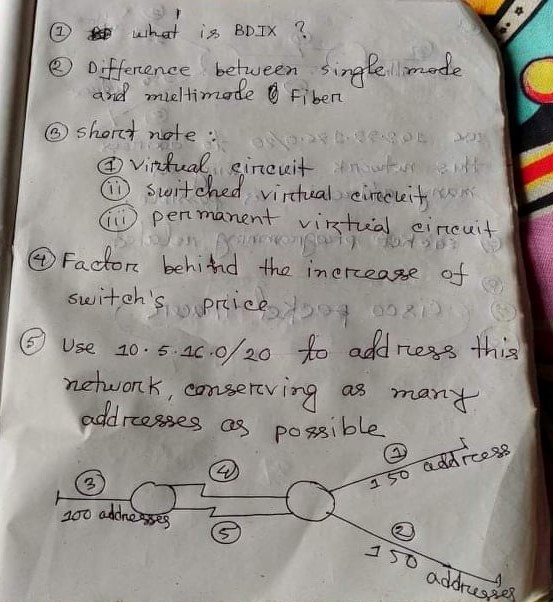 ① what is BDIX ?
② Difference between single mode
and multimode Fiber
③ short note :
① virtual circuit
(ii) switched virtual circuit
(iii) permanent virtual circuit
④ Factor behind the increase of
switch's price
⑤ Use 10.5.16.0/20 to address this
network, conserving as many
addresses as possible
①
150 address
④
③
100 addresses
⑤
②
150
addresses